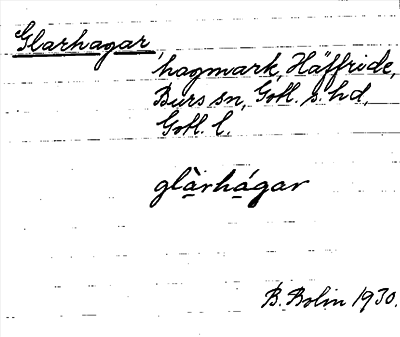 Glarhagar,
hagmark, Häffride,
Burs sn, Gotl. s. hd,
Gotl. l.
glàrhágar
B. Bolin 1930.